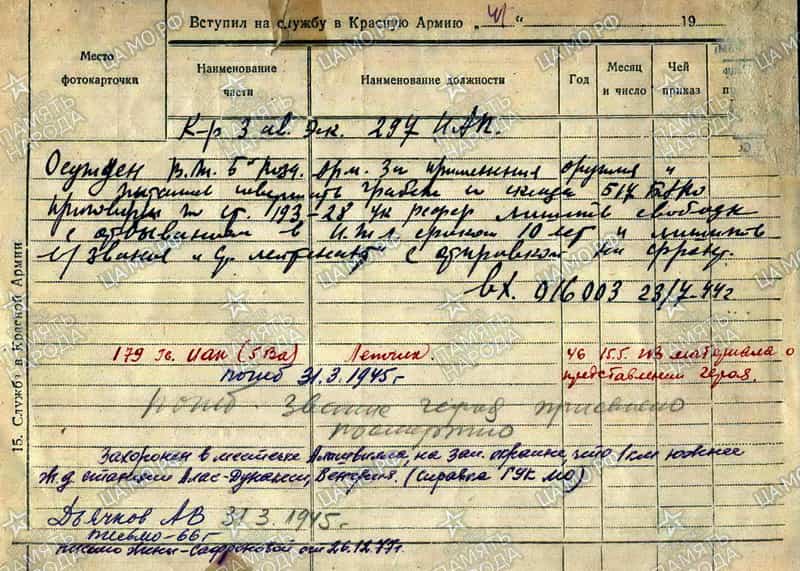 Вступил на службу в Красную Армию „41“ 19
Место фотокарточки
Наименование части
Наименование должности
Год
Месяц и число
Чей приказ
15. Служба в Красной Армии
К-р 3 ав. эск. 297 ИАП.
Осужден В.Т. 5 возд. арм. за применения оружия и
грабеж со склада 517
приговорен по ст. 193-28 УК РСФСР лишить свободы
с отбыванием в И.Т.Л сроком 10 лет и лишить
звания с отправкой на фронт.
Вх. 016003 23/7-44г
179 Гв. ИАП (5 ВА) Летчик 46 15.5. из материала о
погиб 31.3.1945г представлении Героя.
Погиб. Звание героя присвоено
посмертно
Захоронен в местечке на зап. окраине, что 1 км южнее
ж.д станции Алас-Дунакеси, Венгрия. (Справка ГУК МО)
Дьячков АВ 31 3. 1945г.
письмо-66г
письмо жены-Сафроновой от 26.12.77г
ПАМЯТЬ НАРОДА
ЦАМО.РФ